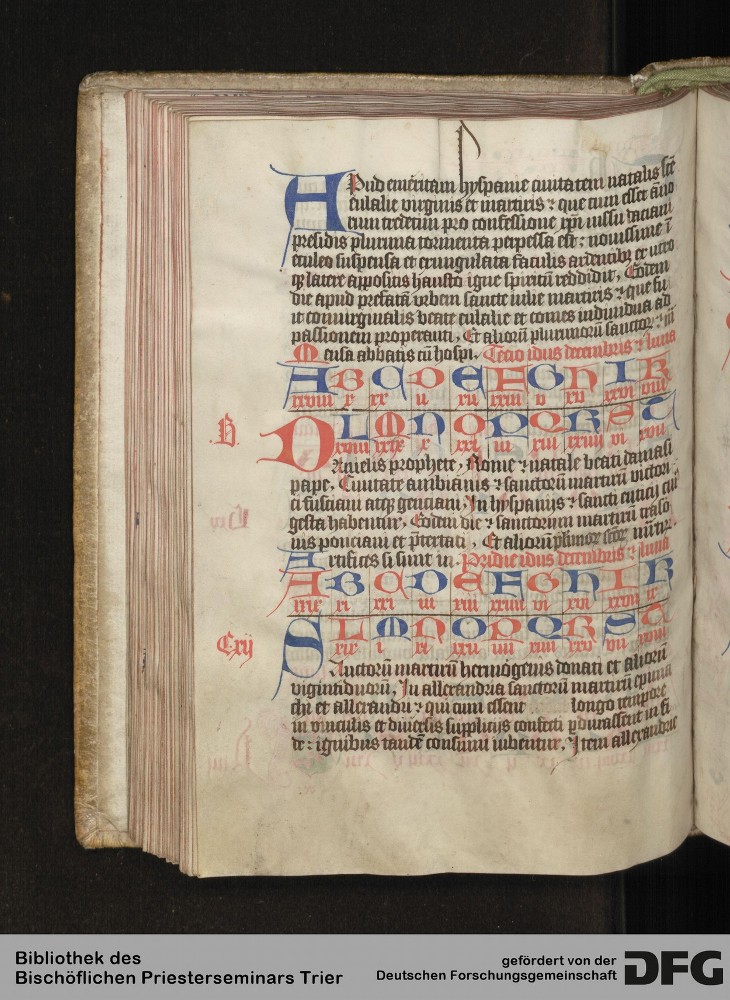 Apud emeritam hyspanie ciuitatem natalis scē
eulalie virginis et martiris : que cum esset āno
rum tredecim pro confessione xp̄i iussu daciani
presidis plurima tormenta perpessa est : nouissime ī
eculeo suspensa et exungulata faculis ardentibꝫ ex utro
qꝫ latere appositis hausto igne spiritū reddidit, Eodem
die apud prefatā vrbem sancte iulie martiris : que fu
it conuirginalis beate eulalie et comes indiuidua ad
passionem properanti, Et aliorū plurimorū sanctoꝝ
Mensa abbatis cū hospi, Tercio idus decembris : luna
A B C D E F G H I K
xxviii x xx ii xii xxiii v xv xxvi viii
L M N O P Q R S T
xviii xxix x xxi iii xiii xxiiii vi xvii
B.
DAnielis prophete, Rome : natale beati damasi
pape, Ciuitate ambianis : sanctorū martirū victori
ci fusciani atqꝫ genciani, In hyspaniis : sancti euticii cui9
gesta habentur, Eodem die : sanctorum martirū traso
nis ponciani et p̄textati, Et aliorū plurimoꝝ scōꝝ
Artifices si sunt in. Pridie idus decembris : luna
A B C D E F G H I K
xi xxi iii xiii xxiiii vi xvi xxvii ix
L M N O P Q R S T
xix i xi xxii iiii xiiii xxv vii xviii
Cxij
SAnctorū martirū hermogenis donati et aliorū
vigintiduorū, In allexandria sanctorū martirū epima
chi et allexandri : qui cum essent longo tempore
in vinculis et diuersis suppliciis confecti ꝑdurassent in fi
de : ignibus tandē consumi iubentur, Item allexandrie
Bibliothek des
Bischöflichen Priesterseminars Trier
gefördert von der
Deutschen Forschungsgemeinschaft
DFG